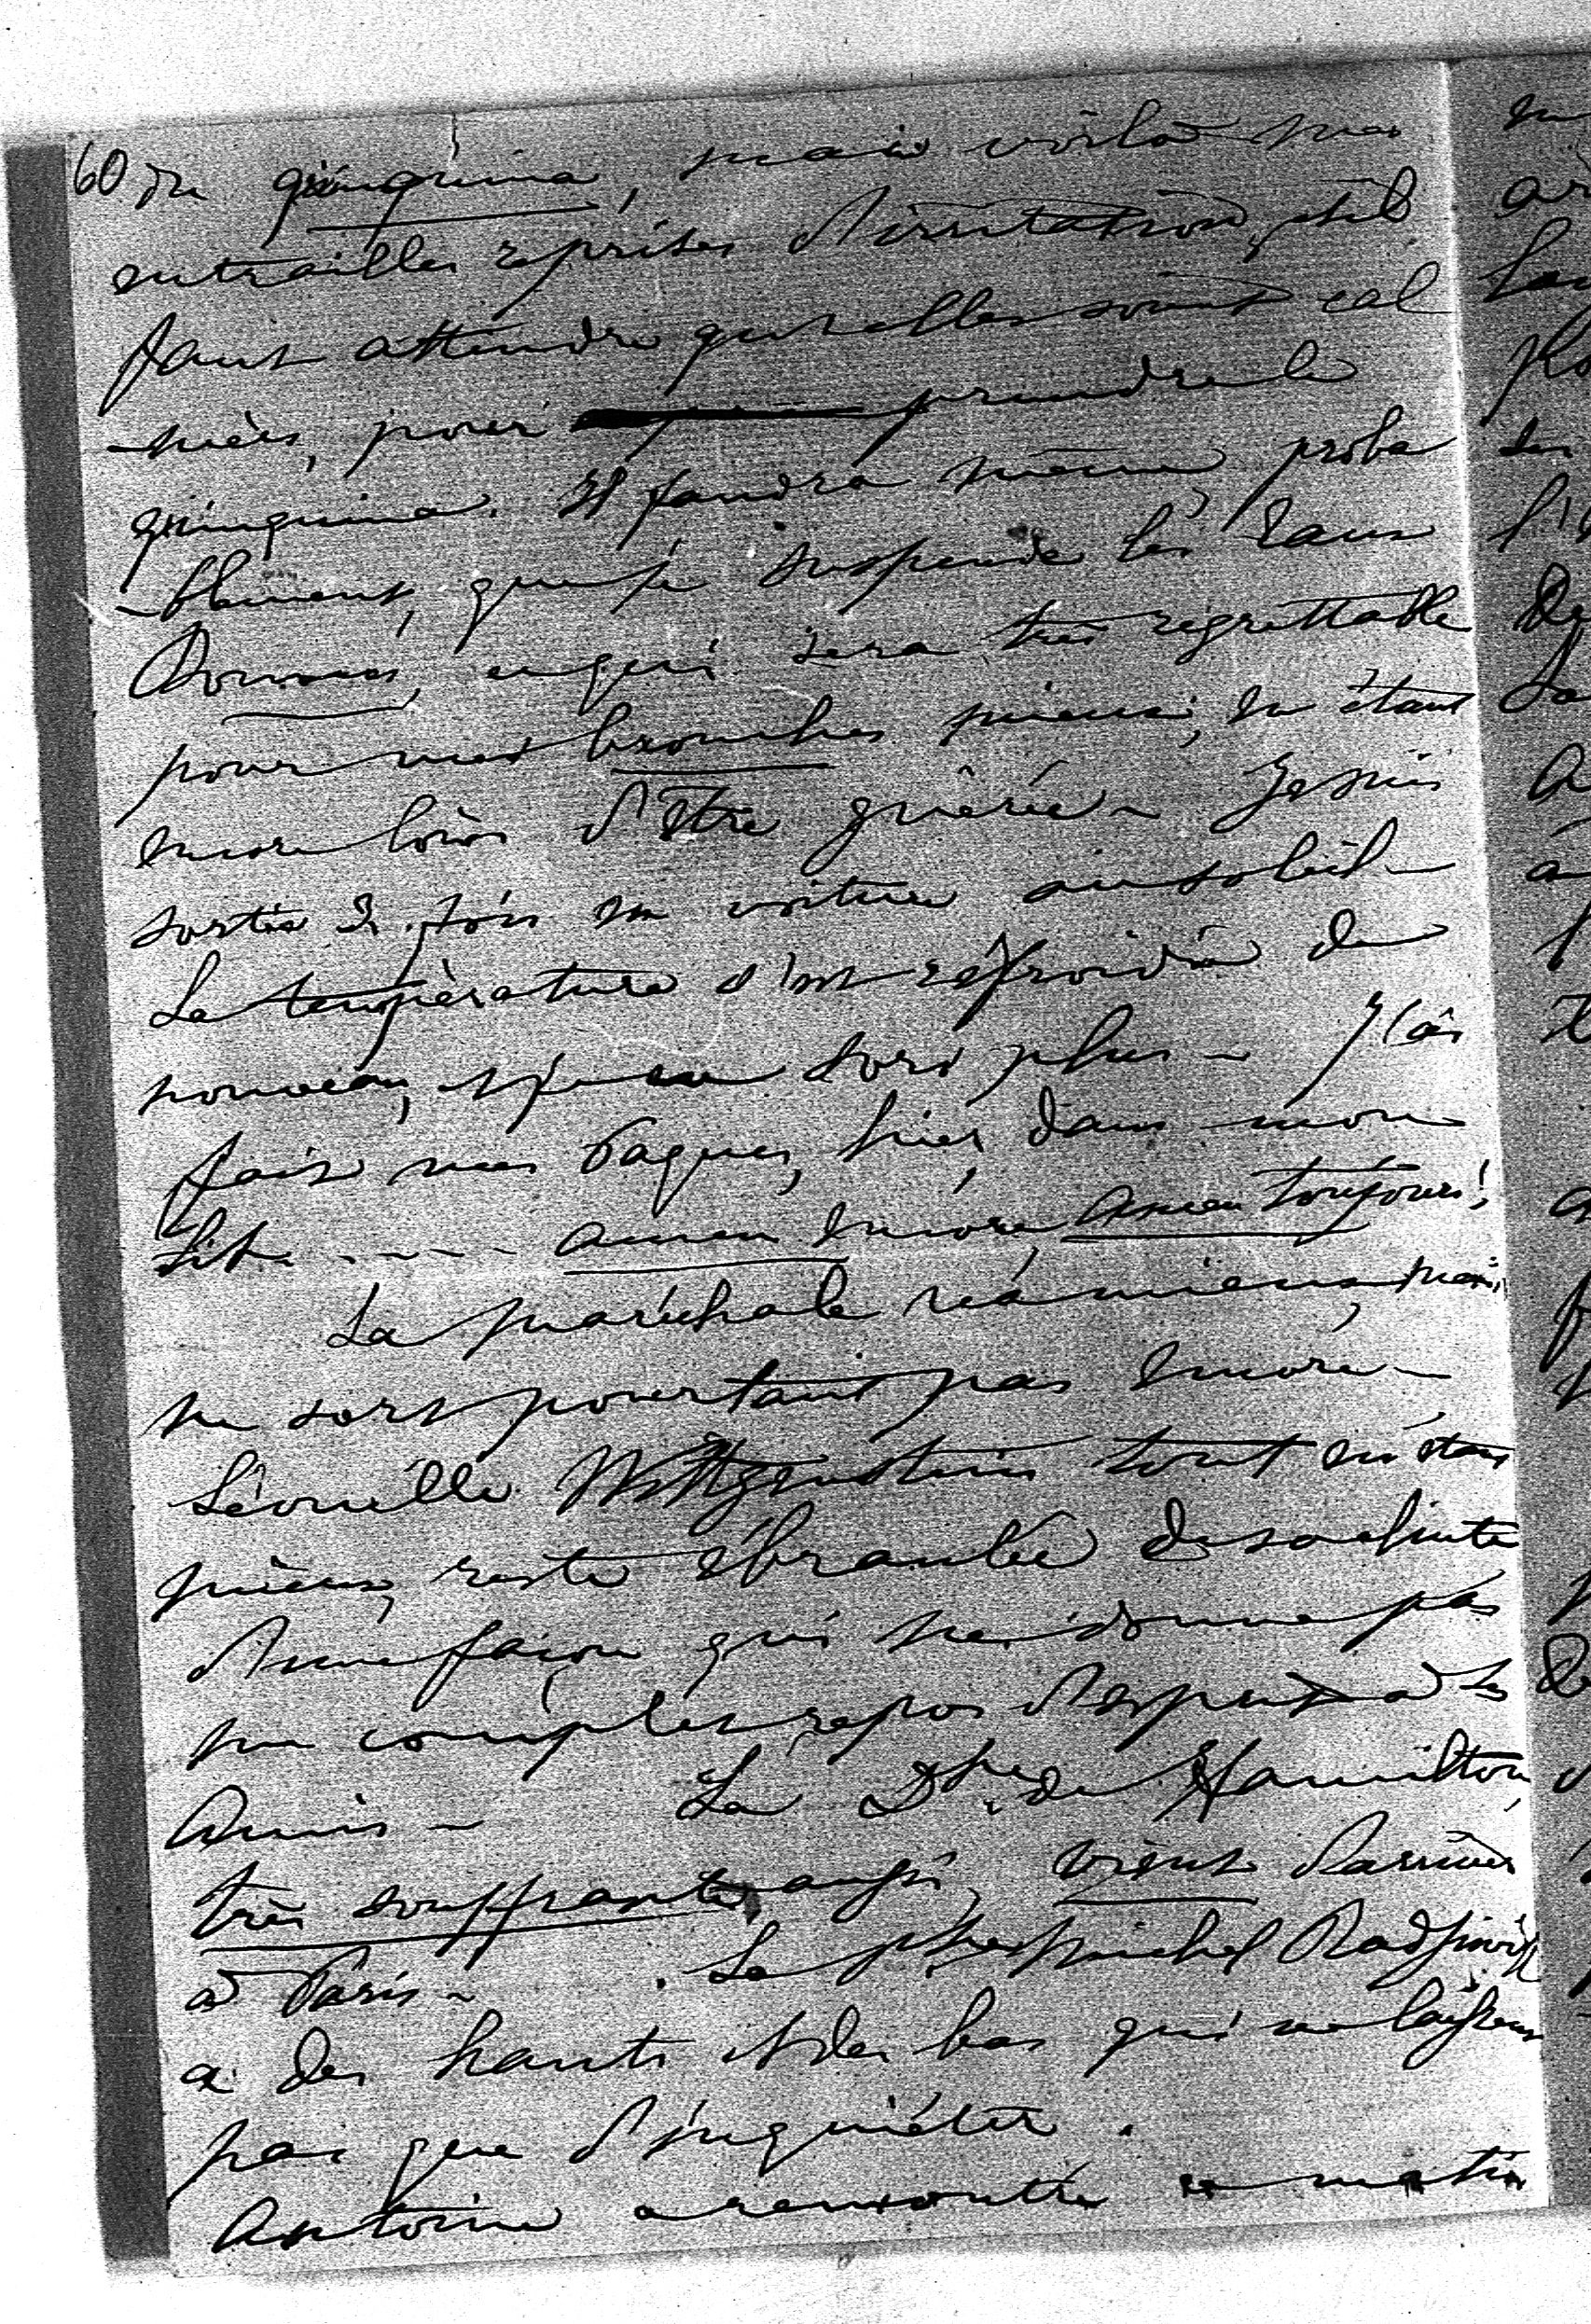 60 du quinquina, mais voilà mes
entrailles reprises d'irritation, et il
faut attendre qu'elles soient cal
-mées, pour prendre le
quinquina. Il faudra même, proba
-blement, que je suspende les Eaux
Bonnes, ce qui sera très regrettable
pour mes bronches mieux, en étant
encore loin d'être guérie ~ Je suis
sortie 2 fois en voiture au soleil ~
La température s'est refroidie de
nouveau, et je ne sors plus ~ J'ai
fait mes Pâques, hier, dans mon
lit. - - - - amen encore, amen toujours!
La maréchale va mieux, mais
ne sort pourtant pas encore ~
Léonille Wittgenstein tout en étant
mieux, reste ébranlée de sa chute
d'une façon qui ne donne pas
un complet repos d'esprit à ses
amis ~ La Dsse de Hamilton,
très souffrante, aussi, vient d'arriver
à Paris ~ . Le Pce Michel Radziwill
a des hauts et des bas qui ne laissent
pas que d'inquiéter.
Antoine a rencontré ce matin